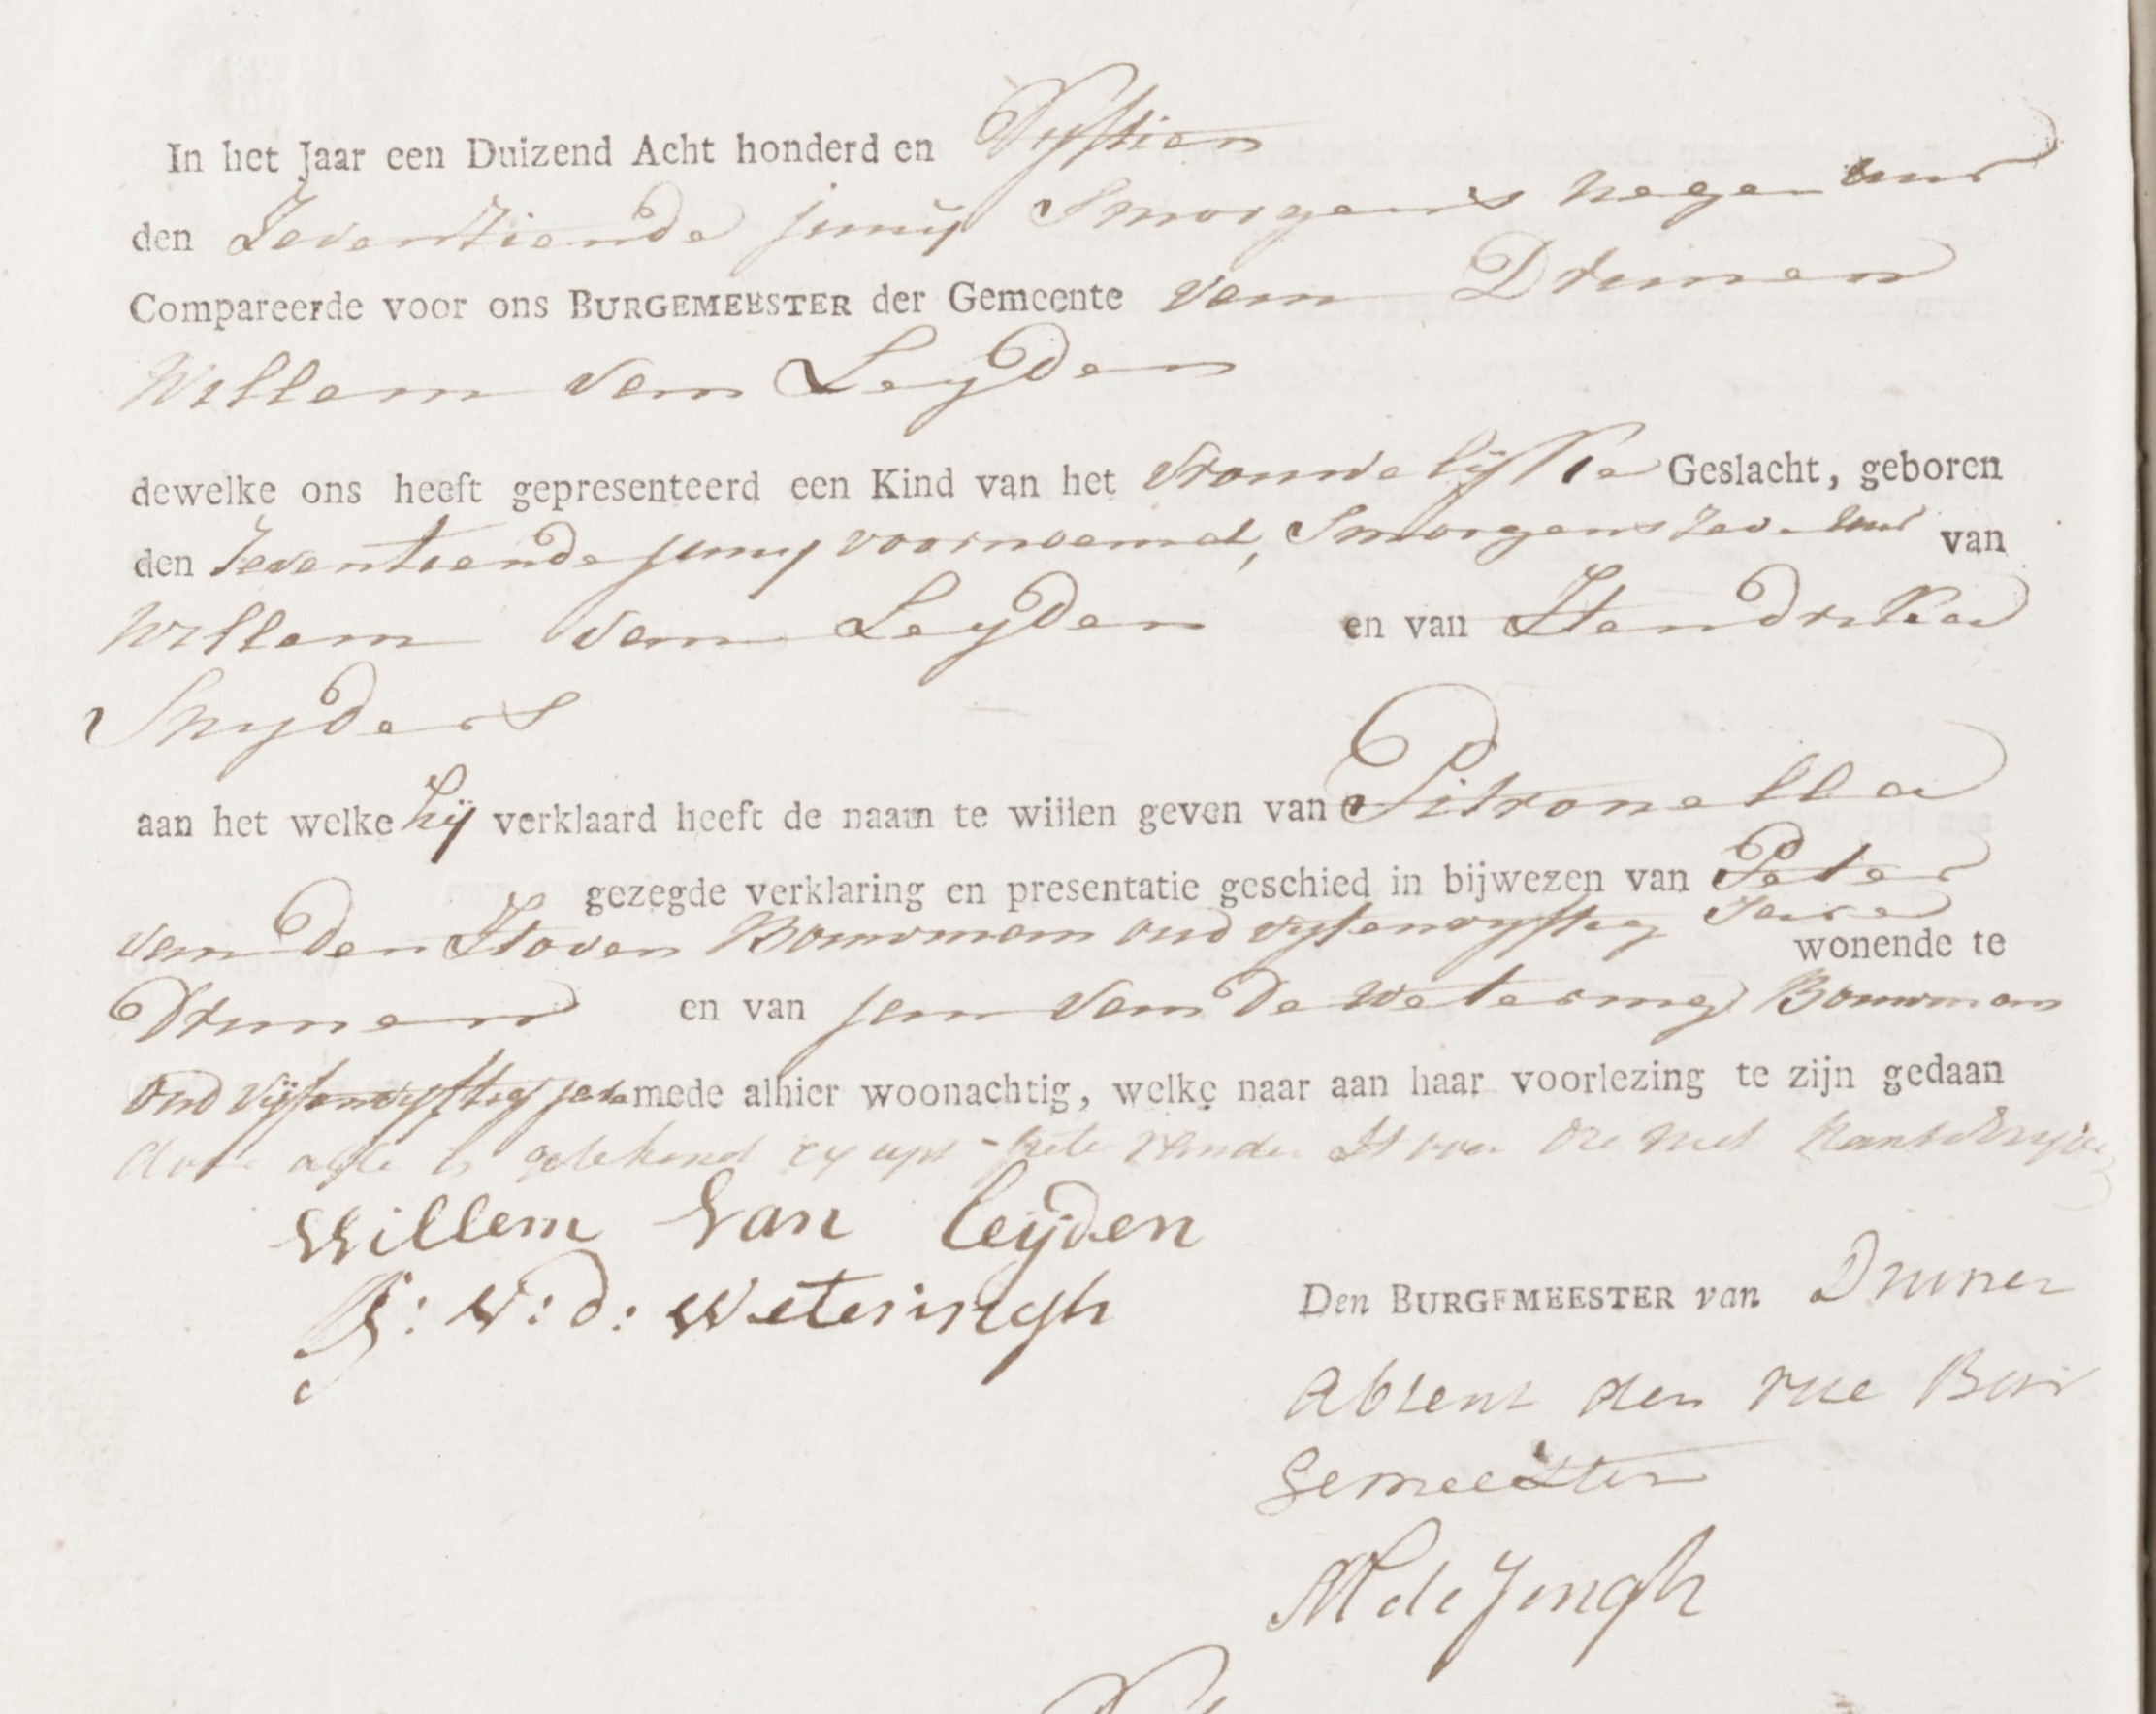 In het Jaar een Duizend Acht honderd en Vyftien
den Zeventiende junÿ Smorgens negen uur
Compareerde voor ons BURGEMEESTER der Gemeente van Drunen
Willem van Leyden
dewelke ons heeft gepresenteerd een Kind van het Vrouwelijke Geslacht, geboren
den Zeventiende juny voornoemd, Smorgens van
Willem van Leyden en van Hendrika
Snyders
aan het welke hij verklaard heeft de naam te willen geven van Pitronella
gezegde verklaring en presentatie geschied in bijwezen van Peter
van Den Hoven Bouwman oud vyfenvyftig Jaren wonende te
Drunen en van jan van De Wetering Bouwman
oud vijfenvyftig jaren mede alhier woonachtig, welke naar aan haar voorlezing te zijn gedaan
acte is getekend vander Hoven die niet
Willem van leijden
J: v: d: weteringh
Den BURGEMEESTER van Drunen
Absent den Bur
gemeester
de Jongh